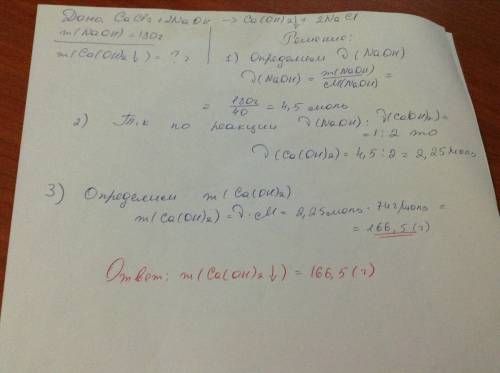 Дано: CaCl₂ + 2NaOH → Ca(OH)₂↓ + 2NaCl
m(NaOH) = 180г
m(Ca(OH)₂↓) = ? г
Решение:
1) Определяем ν(NaOH)
ν(NaOH) = m(NaOH)/M(NaOH) =
= 180г/40 = 4,5 моль
2) Т.к по реакции ν(NaOH) : ν(Ca(OH)₂) =
= 1 : 2 то
ν(Ca(OH)₂) = 4,5 : 2 = 2,25 моль
3) Определяем m(Ca(OH)₂)
m(Ca(OH)₂) = ν · M = 2,25 моль · 74 г/моль =
= 166,5 (г)
Ответ: m(Ca(OH)₂↓) = 166,5 (г)